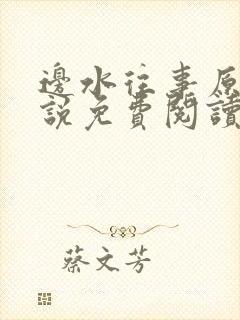 邊水往事原
說免費閱讀
蔡文芳